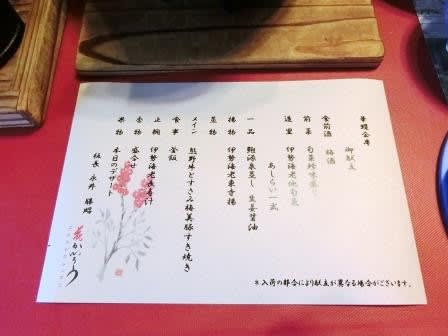 会席
御献立
食前酒 梅酒
前菜 旬菜珍味盛り
造里 伊勢海老地旬魚
あしらい一式
一品 鮑源泉蒸し 生姜醤油
揚物 伊勢海老東寺揚
蒸物
メイン 熊野牛とすさみ梅美豚すき焼き
食事 釜飯
止椀 伊勢海老 汁
香物 盛合せ
果物 本日のデザート
板長 永井 勝昭
花
※入荷の都合により献立が異なる場合がございます。